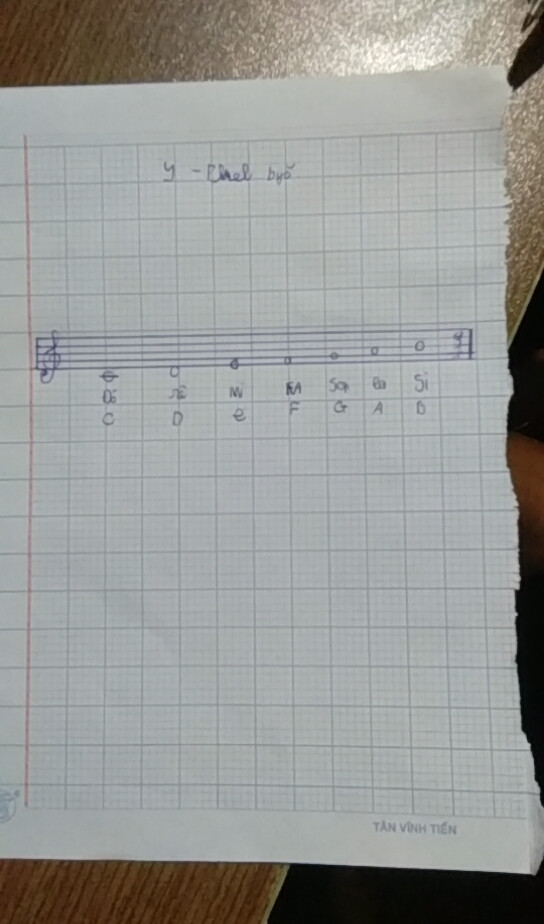 Y - Ehel byă
Đồ rê Mi FA Son La Si
C D e F G A B
TÂN VĨNH TIẾN